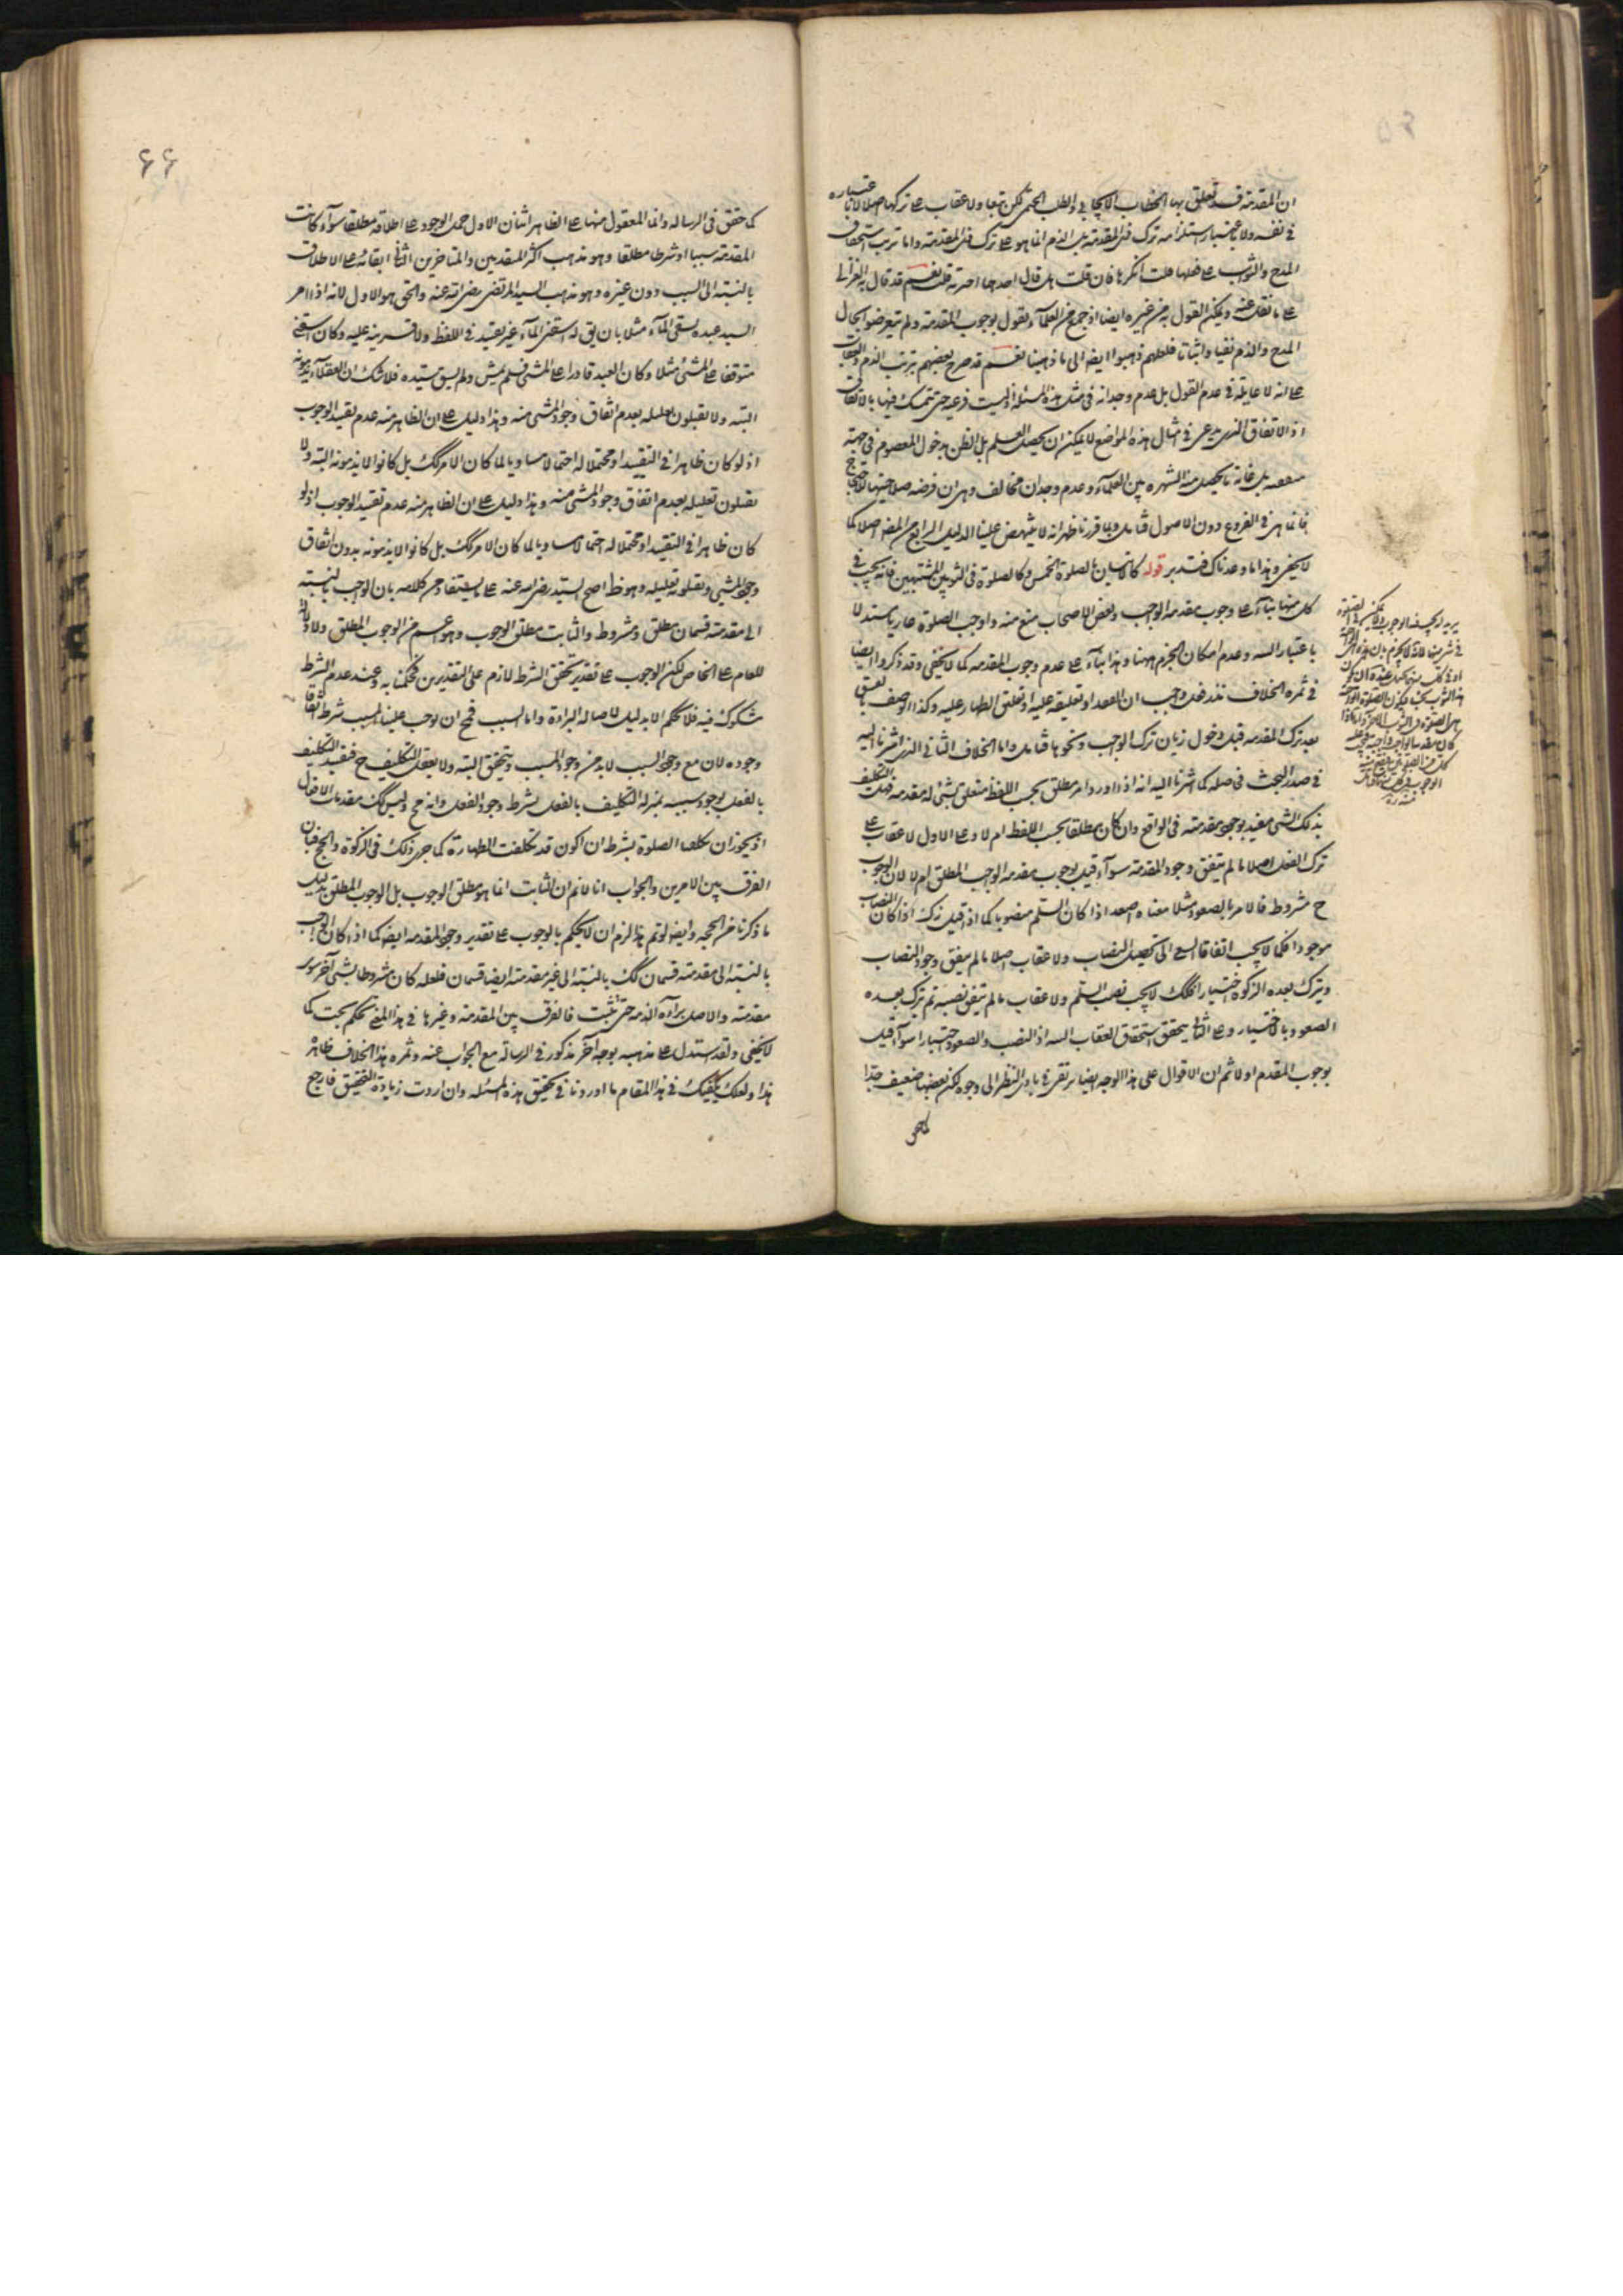 ان المقدمة قد تعلق بها الخطاب الايجابي والطلب الحتمي لكن تبعا ولا عقاب على تركها اصلا لا باعتباره
في نفسه ولا باعتبار استلزامه ترك ذي المقدمة بل الذم انما هو على ترك ذي المقدمة واما ترتب استحقاق
المدح والثواب على فعلها فلست انكرها فان قلت هل قال احد بما اخترته قلت نعم قد قال به الغزالي
على ما نقل عنه ويمكن القول به من غيره ايضا اذ جمع من العلماء يقول بوجوب المقدمة ولم يتعرضوا لحال
المدح والذم نفيا واثباتا فلعلهم ذهبوا ايضا الى ما ذهبنا نعم قد صرح بعضهم بترتب الذم والعقاب
على انه لا غايلة في عدم القول بل عدم وجدانه في مثل هذه المسئلة اذ ليست فرعية حتى يتمسك فيها بالاتفاق
اذ الاتفاق الذي يدعى في امثال هذه المواضع لا يمكن ان يحصل العلم بل الظن بدخول المعصوم في جهته
بل غاية ما يحصل منه الشهرة بين العلماء وعدم وجدان مخالف وهي ان فرضه صلاحيتها للاحتجاج
فانما هي في الفروع دون الاصول فتامل وبما قررنا ظهر انه لا ينتهض علينا الدليل الرابع ايضا اصلا كما
لا يخفى وهذا ما وعدناك فتدبر قوله كالاتيان بالصلوة الخمس وكالصلوة في الثوبين المشتبهين فانه يجب في
كل منهما بناء على وجوب مقدمة الواجب وبعض الاصحاب منع منه واوجب الصلوة عاريا مستدلا
باعتبار النية وعدم امكان الجزم ههنا وهذا بناء على عدم وجوب المقدمة كما لا يخفى وقد ذكروا ايضا
في ثمرة الخلاف نذر فعل واجب ان انعقد او تعليقه عليه او تعلق الظهار عليه وكذا الوصف بالفسق
بعد ترك المقدمة قبل دخول زمان ترك الواجب ونحوها فتامل واما الخلاف الثاني الذي اشرنا اليه
في صدر البحث في اصله كما اشرنا اليه انه اذا ورد امر مطلق بحسب اللفظ متعلق بشئ له مقدمة فهل التكليف
بذلك الشئ مقيد بوجود مقدمته في الواقع وان كان مطلقا بحسب اللفظ ام لا وعلى الاول لا عقاب على
ترك الفعل اصلا ما لم يتفق وجود المقدمة سواء قيل بوجوب مقدمة الواجب المطلق ام لا لان الوجوب
ح مشروط فالامر بالصعود مثلا معناه اصعد اذا كان السلم منصوبا كما اذا قيل زك اذا كان النصاب
موجودا فكما لا يجب اتفاقا السعي الى تحصيل النصاب ولا عقاب اصلا ما لم يتفق وجود النصاب
ويترك بعده الزكوة اختيارا فكذلك لا يجب نصب السلم ولا عقاب ما لم يتفق نصبه ثم ترك بعده
الصعود بالاختيار وعلى الثاني يتحقق استحقاق العقاب البتة اذ النصب والصعود اختيارا سواء قيل
بوجوب المقدم او لا ثم ان الاقوال على هذا الوجه ايضا يرتقى في بادي النظر الى وجوه لكن بعضها ضعيف جدا
كما حقق
يريد انه يجب
في شئ منها لانه لا يجزم بان هذه
٦٦
كما حقق في الرسالة وانما المعقول منها على الظاهر اثنان الاول حمل الوجود على اطلاقه مطلقا سواء كانت
المقدمة سببا او شرطا مطلقا وهو مذهب اكثر المتقدمين والمتاخرين الثاني ابقائه على الاطلاق
بالنسبة الى السبب دون غيره وهو مذهب السيد المرتضى رضي الله عنه والحق هو الاول لانه اذا امر
السيد عبده بسقي الماء مثلا بان يق له اسقني الماء غير تقييد في اللفظ ولا قرينة عليه وكان السقي
متوقفا على المشي مثلا وكان العبد قادرا على المشي فلم يمش ولم يسق سيده فلا شك ان العقلاء يذمونه
البتة ولا يقبلون تعليله بعدم اتفاق وجود المشي منه وهذا دليل على ان الظاهر منه عدم تقييد الوجوب
اذ لو كان ظاهرا في التقييد او محتملا له احتمالا مساويا لما كان الامر كك بل كانوا لا يذمونه البتة ولا
يقبلون تعليله بعدم اتفاق وجود المشي منه وهذا دليل على ان الظاهر منه عدم تقييد الوجوب اذ لو
كان ظاهرا في التقييد او محتملا له احتمالا مساويا لما كان الامر كك بل كانوا لا يذمونه بدون اتفاق
وجود المشي ويقبلونه تعليله وهو ظ احتج السيد رضي الله عنه على ما يستفاد من كلامه بان الواجب بالنسبة
الى مقدمته قسمان مطلق ومشروط والثابت مطلق الوجوب وهو اعم من الوجوب المطلق ولا دلالة
للعام على الخاص لكن الوجوب على تقدير تحقق الشرط لازم على التقديرين فحكمنا به وعند عدم الشرط
مشكوك فيه فلا نحكم الا بدليل لاصالة البراءة واما السبب فمح ان يوجب علينا المسبب شرط اتفاق
وجوده لان مع وجود السبب لا بد من وجود المسبب ويتحقق البتة ولا يعقل التكليف ح فتقييد التكليف
بالفعل بوجود سببه بمنزلة التكليف بالفعل بشرط وجود الفعل وانه مح وليس كك مقدمات الافعال
اذ يجوز ان يكلفنا الصلوة بشرط ان اكون قد تكلفت الطهارة كما جرى ذلك في الزكوة والحج فبان
الفرق بين الامرين والجواب انا لا نم ان الثابت انما هو مطلق الوجوب بل الوجوب المطلق بدليل
ما ذكرنا من الحجة وايضا لو تم هذا لزم ان لا يحكم بالوجوب على تقدير وجود المقدمة ايضا كما اذا كان الواجب
بالنسبة الى مقدمته قسمان كك بالنسبة الى غير مقدمته ايضا قسمان فلعله كان مشروطا بشئ آخر سوى
مقدمته والاصل براءة الذمة حتى يثبت فالفرق بين المقدمة وغيرها في هذا المعنى تحكم بحت كما
لا يخفى ولقد استدل على مذهبه بوجه آخر مذكور في الرسالة مع الجواب عنه وثمرة هذا الخلاف ظاهر
هذا ولعلك يكفيك في هذا المقام ما اوردنا في تحقيق هذه المسئلة وان اردت زيادة التحقيق فارجع